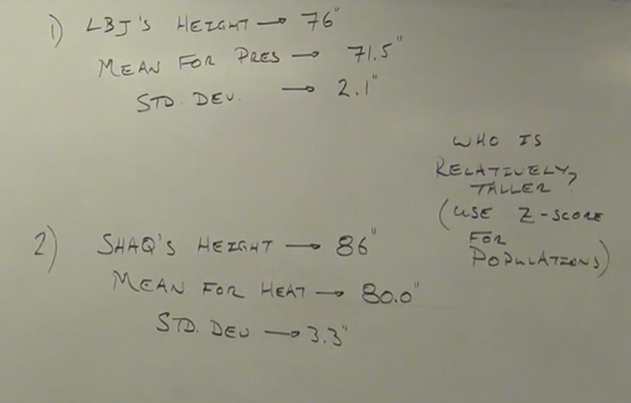 1) LBJ'S HEIGHT → 76"
MEAN FOR PRES → 71.5"
STD. DEV. → 2.1"
WHO IS
RELATIVELY,
TALLER
(USE Z-SCORE
FOR
POPULATIONS)
2) SHAQ'S HEIGHT → 86"
MEAN FOR HEAT → 80.0"
STD. DEV → 3.3"